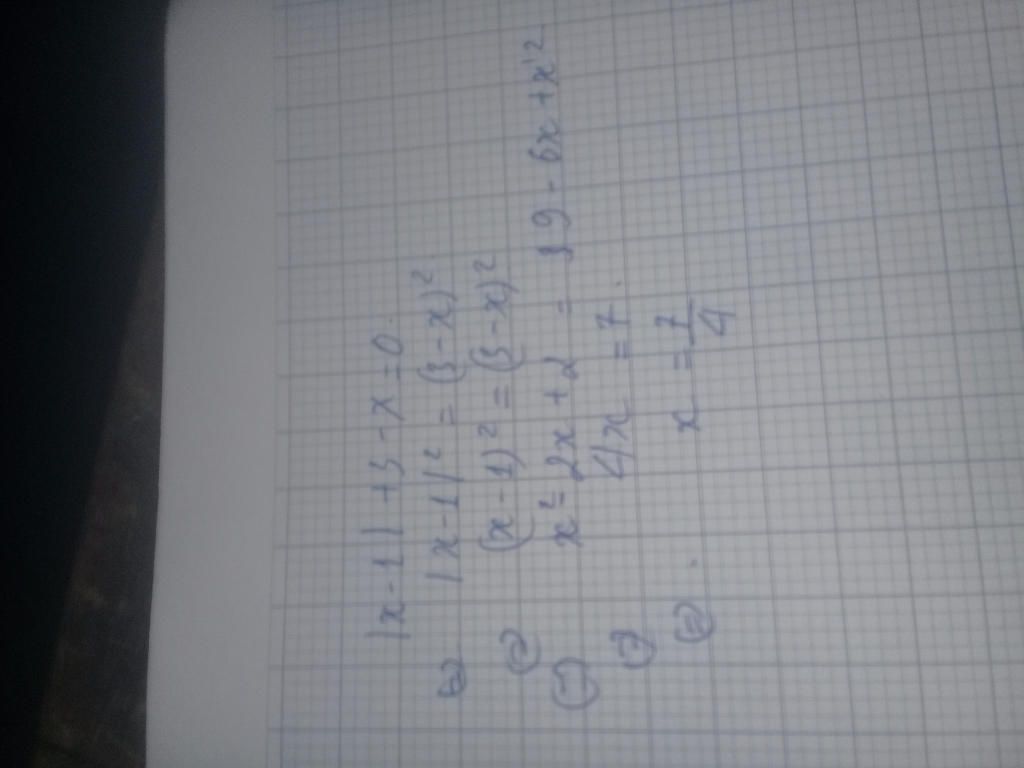 |x-1| + 3 - x = 0.
⇔ |x-1|² = (3-x)².
⇔ (x-1)² = (3-x)²
⇔ x² - 2x + 2 = 9 - 6x + x²
⇔ 4x = 7.
⇔ x = 7/4